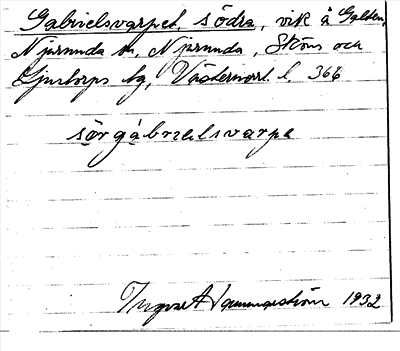 Gabrielsvarpet, södra, vik å Galten,
Njurunda sn, Njurunda, Sköns och
Ljustorps tg, Västernorrl. l. 366
sörgábrielsvarpe
Ingvar 1932